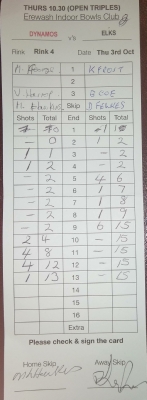 THURS 10.30 (OPEN TRIPLES)
Erewash Indoor Bowls Club
DYNAMOS v/s ELKS
Rink Rink 4 Date Thu 3rd Oct
1 K PROUT
2
3 B COE
Skip D FEWKES
Shots Total End Shots Total
1 1
- 0 2 1 2
1 1 3 - 2
1 2 4 - 2
- 2 5 4 6
- 2 6 1 7
- 2 7 1 8
- 2 8 1 9
- 2 9 6 15
2 4 10 - 15
4 8 11 - 15
4 12 12 - 15
1 13 13 - 15
14
15
16
Extra
Please check & sign the card
Home Skip Away Skip